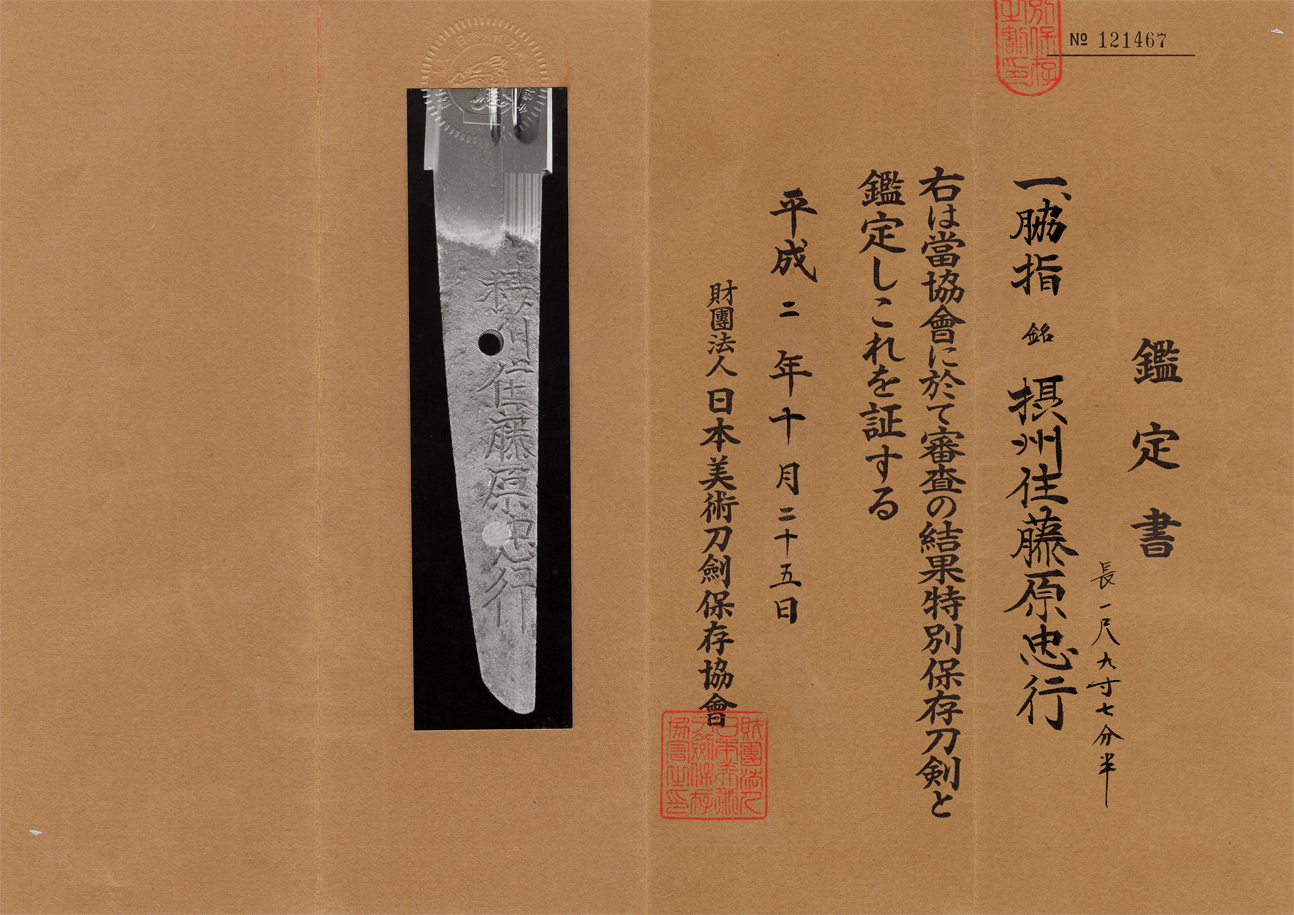 № 121467
鑑定書
長一尺九寸七分半
一、脇指 銘 摂州住藤原忠行
右は當協會に於て審査の結果特別保存刀剣と
鑑定しこれを証する
平成二年十月二十五日
財團法人日本美術刀劍保存協會
財團法人
日本美術
刀劍保存
協會之印
摂州住藤原忠行